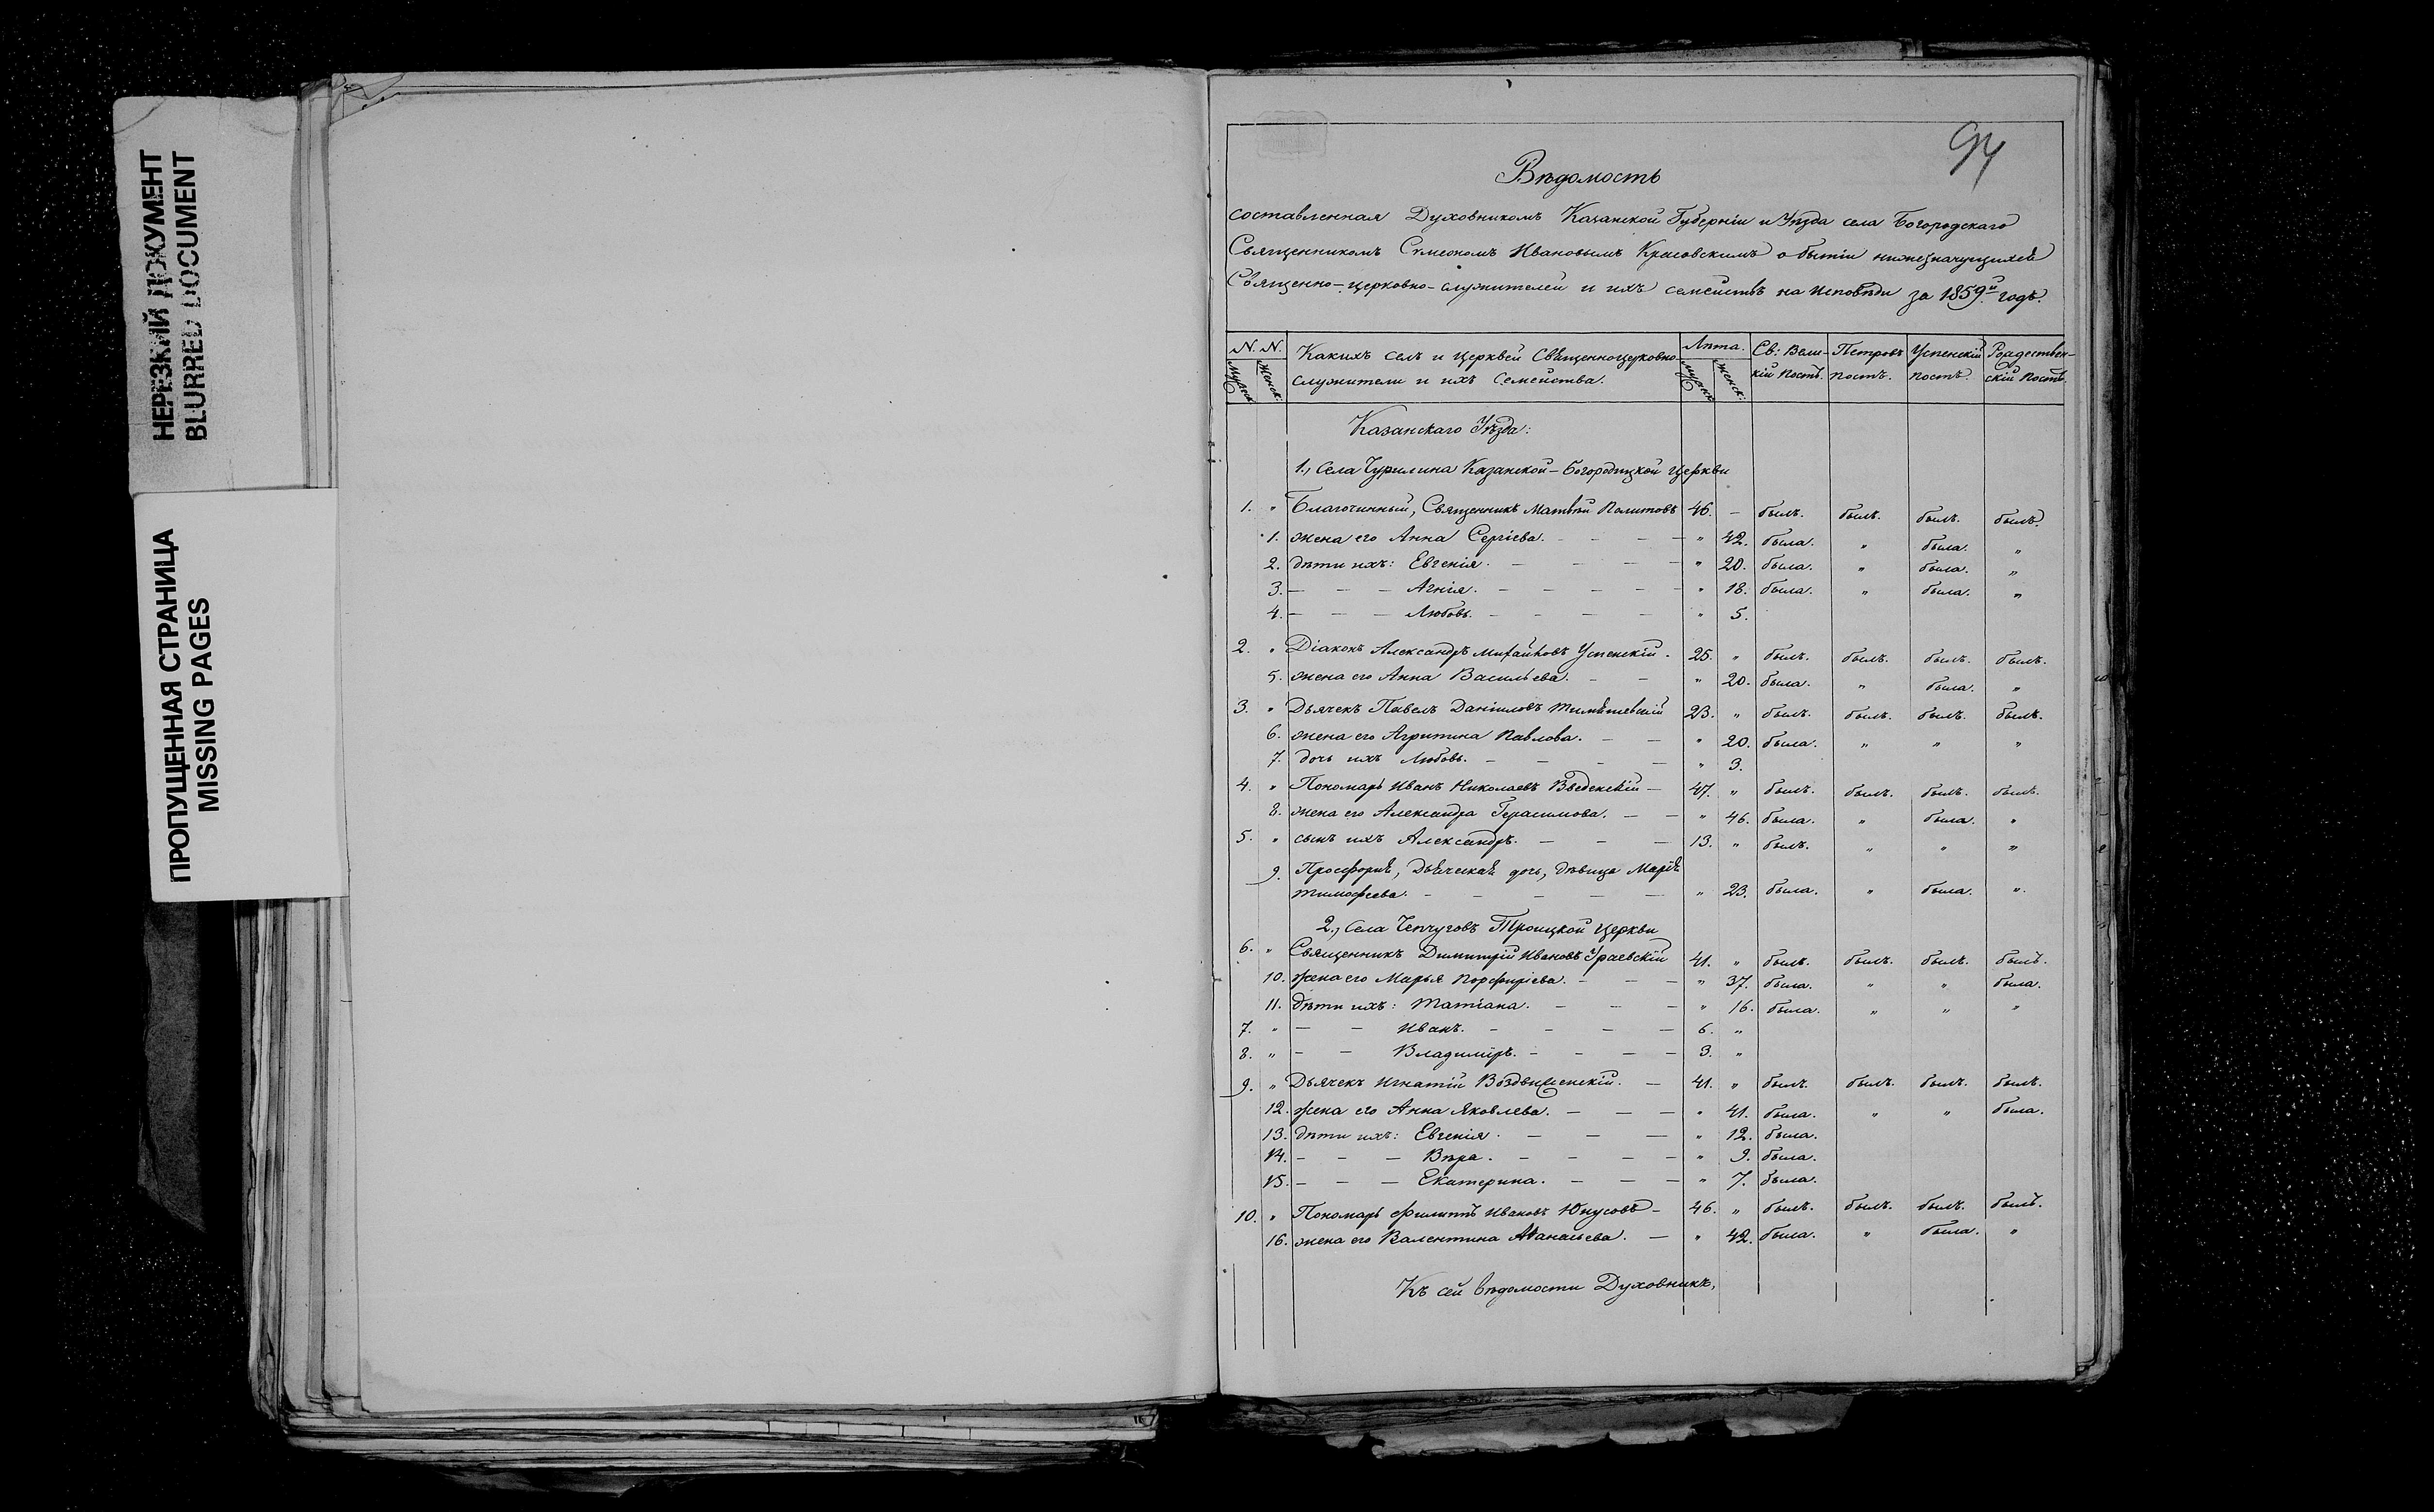 НЕРЕЗКИЙ ДОКУМЕНТ
BLURRED DOCUMENT
ПРОПУЩЕННАЯ СТРАНИЦА
MISSING PAGES
94
Вѣдомость
составленная Духовникомъ Казанской Губерніи и Уѣзда села Богородскаго
Священникомъ Сѵмеономъ Ивановымъ Красовскимъ о бытіи нижезначущихся
Священно-церковно-служителей и ихъ семействъ на исповѣди за 1859й годъ.
N. N. Какихъ селъ и церквей Священноцерковно- Лѣта. Св: Вели- Петровъ Успенскій Рождествен-
Мужск. Женск: служители и ихъ Семейства. Мужск. Женск: кій Постъ. постъ. постъ. скій Постъ.
Казанскаго Уѣзда:
1., Села Чурилина Казанской-Богородицкой Церкви
1. " Благочинный, Священникъ Матвѣй Политовъ 46. - былъ. былъ. былъ. былъ.
1. жена его Анна Сергіева. - - - " 42. была. " была. "
2. дѣти ихъ: Евгенія. - - - - " 20. была. " была. "
3. - - - Агнія. - - - - " 18. была. " была. "
4. - - - Любовь. - - - - " 5.
2. " Діаконъ Александръ Михайловъ Успенскій. 25. " былъ. былъ. былъ. былъ.
5. жена его Анна Васильева. - - " 20. была. " была. "
3. " Дьячекъ Павелъ Даніиловъ 23. " былъ. былъ. былъ. былъ.
6. жена его Агрипина Павлова. - - " 20. была. " " "
7. дочь ихъ Любовь. - - - - " 3.
4. " Пономарь Иванъ Николаевъ Введенскій - 47. " былъ. былъ. былъ. былъ.
8. жена его Александра Герасимова. - - " 46. была. " была. "
5. " сынъ ихъ Александръ. - - - 13. " былъ. " " "
9. Просфорня, Дьяческая дочь, дѣвица Марія
Тимофеева. - - - - - " 23. была. " была. "
2., Села Чепчуговъ Троицкой Церкви
6. " Священникъ Димитрій Ивановъ Ураевскій 41. " былъ. былъ. былъ. былъ.
10. жена его Марья Порфиріева. - - - " 37. была. " " была.
11. дѣти ихъ: Татіана. - - - " 16. была. " " "
7. " - - Иванъ. - - - - 6. "
8. " - - Владиміръ. - - - - 3. "
9. " Дьячекъ Игнатій Воздвиженскій. - 41. " былъ. былъ. былъ. былъ.
12. жена его Анна Яковлева. - - - " 41. была. " " была.
13. дѣти ихъ: Евгенія. - - - " 12. была.
14. - - - Вѣра. - - - - " 9. была.
15. - - - Екатерина. - - - " 7. была.
10. " Пономарь Филиппъ Ивановъ Юнусовъ - 46. " былъ. былъ. былъ. былъ.
16. жена его Валентина Аѳанасьева. - " 42. была. " была. "
Къ сей вѣдомости Духовникъ,